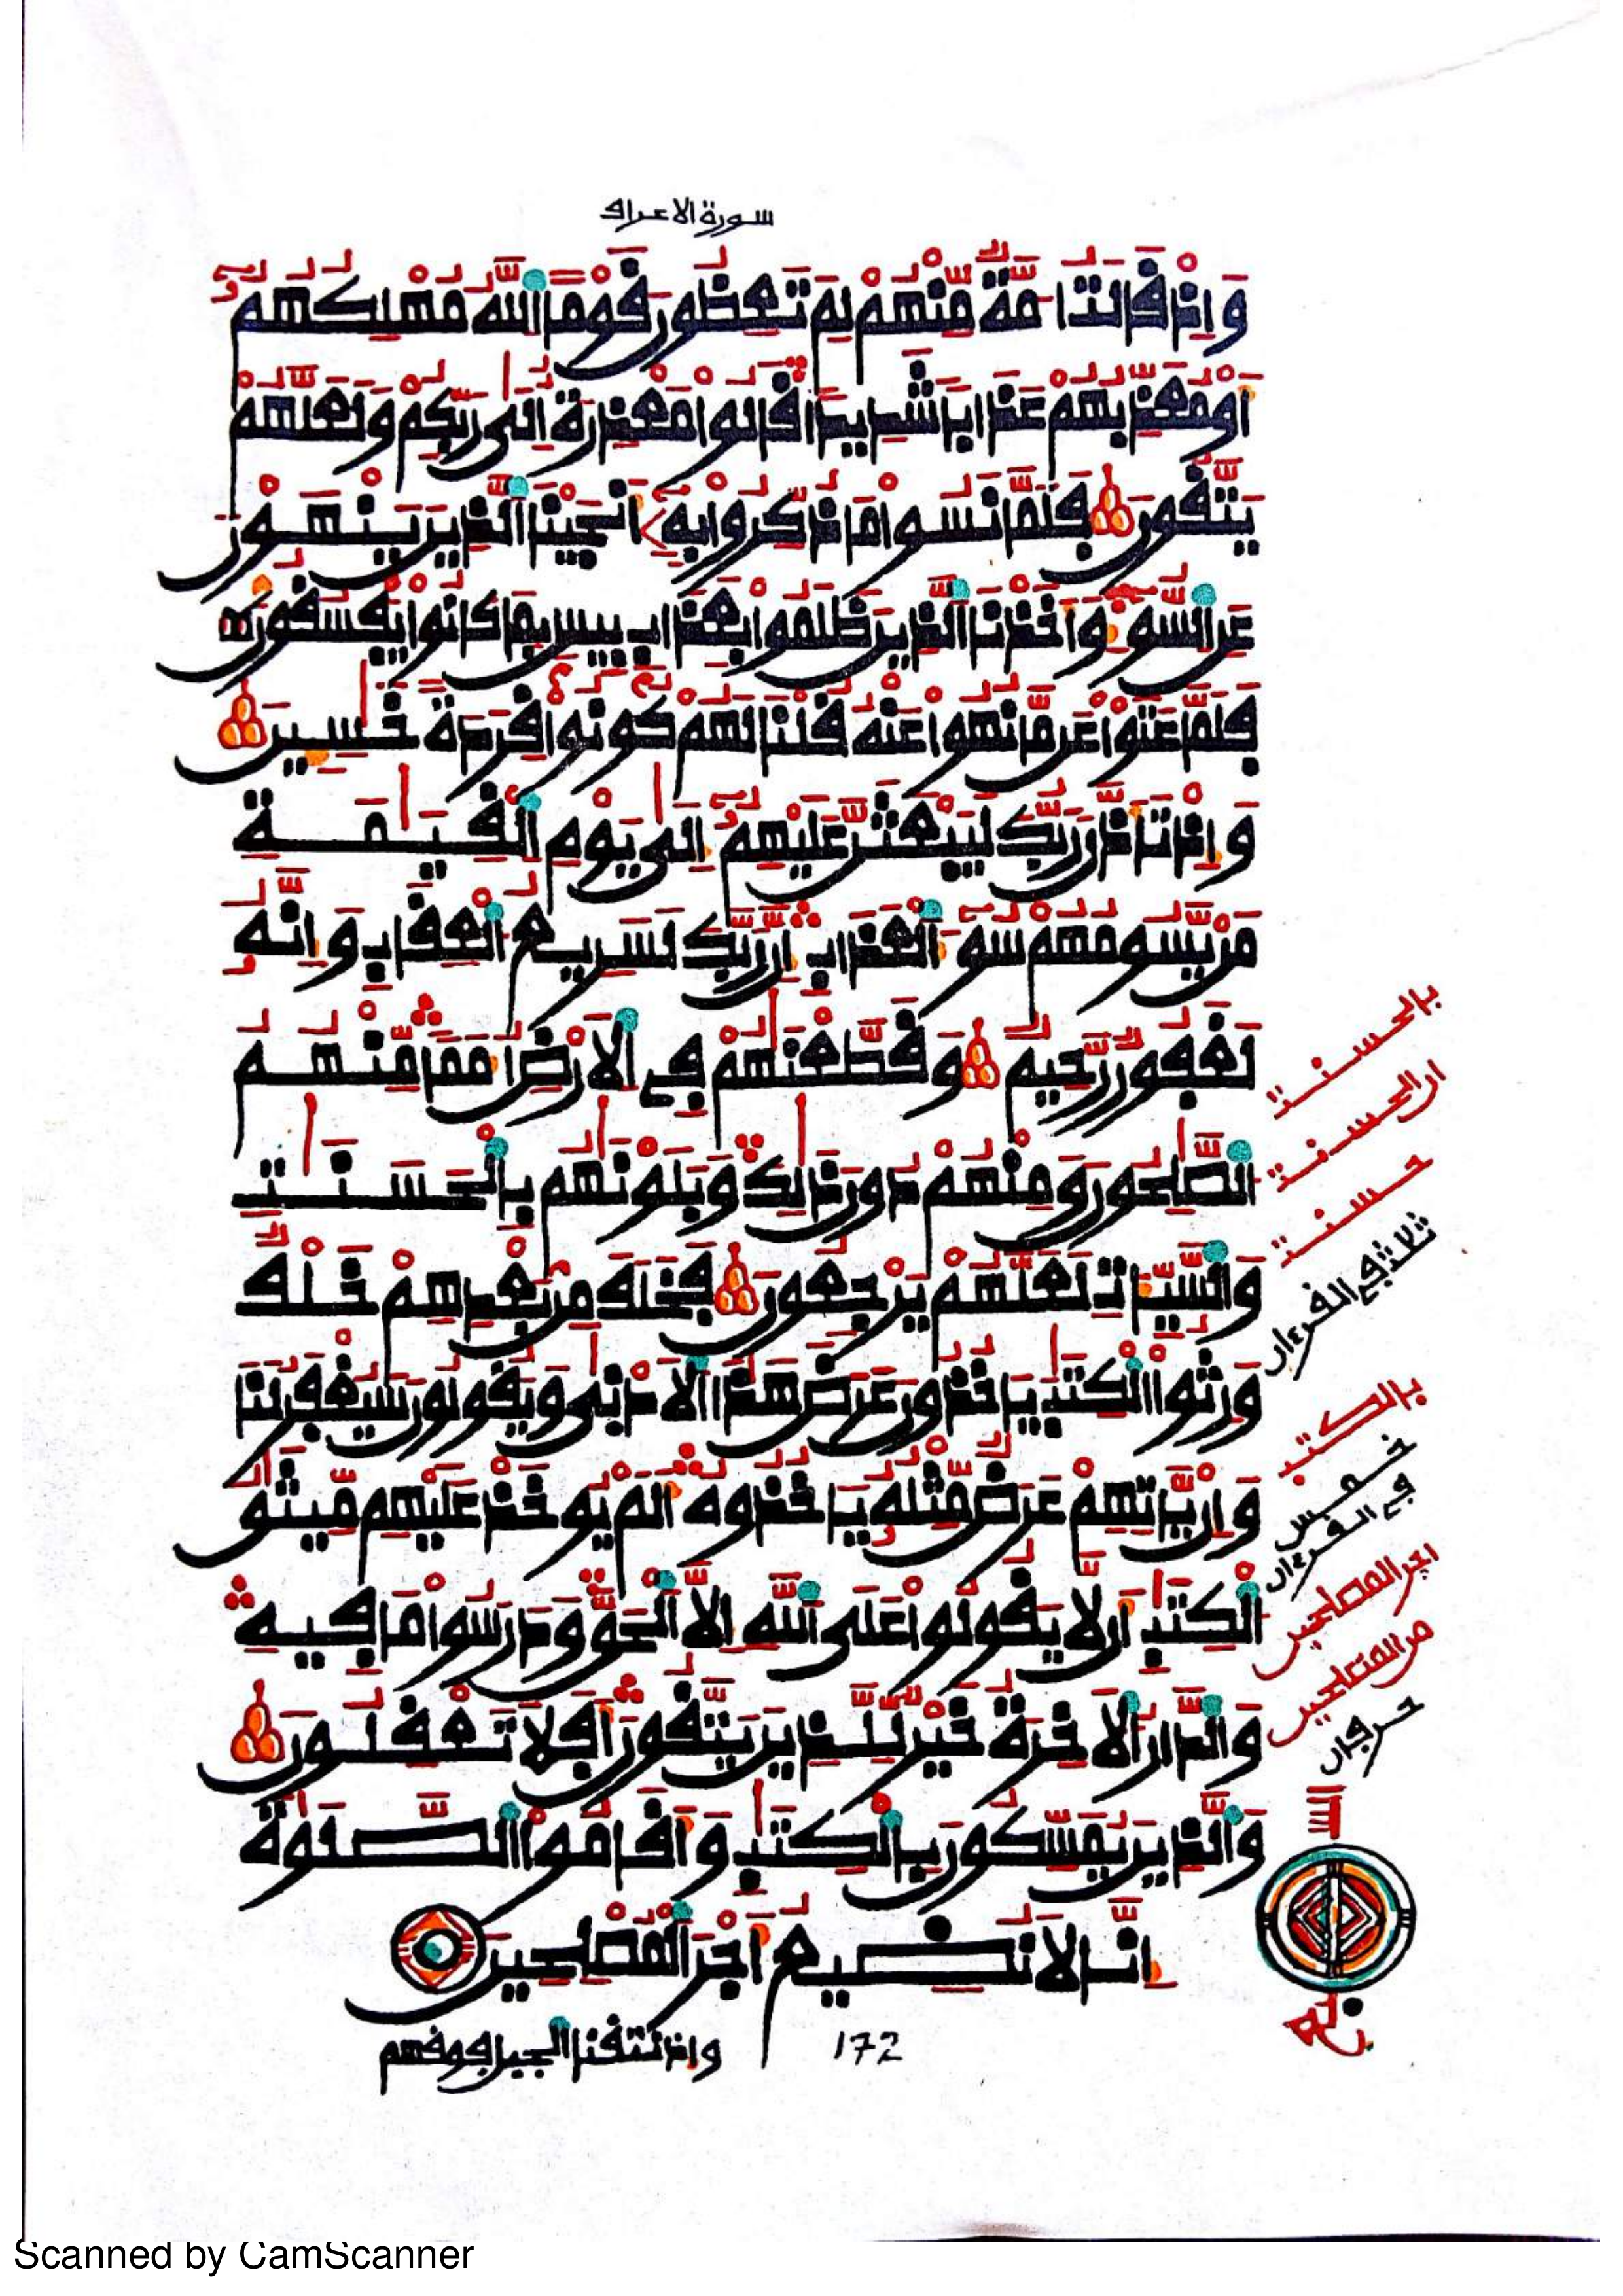 سورة الاعراف
وَإِذْ قَالَتُ امَّةٌ مِّنْهُمْ لِمَ تَعِظُونَ قَوْمًا اللَّهُ مُهْلِكُهُمُ
أَوْ مُعَذِّبُهُمْ عَذَابًا شَدِيدًا قَالُوا مَعْذِرَةٌ إِلَىٰ رَبِّكُمْ وَلَعَلَّهُمْ
يَتَّقُونَ فَلَمَّا نَسُوا مَا ذُكِّرُوا بِهِ أَنجَيْنَا الَّذِينَ يَنْهَوْنَ
عَنِ السُّوءِ وَأَخَذْنَا الَّذِينَ ظَلَمُوا بِعَذَابٍ بِيسٍ بِمَا كَانُوا يَفْسُقُونَ
فَلَمَّا عَتَوْا عَن مَّا نُهُوا عَنْهُ قُلْنَا لَهُمْ كُونُوا قِرَدَةً خَٰسِـِٕينَ
وَإِذْ تَأَذَّنَ رَبُّكَ لَيَبْعَثَنَّ عَلَيْهِمُ إِلَىٰ يَوْمِ الْقِيَٰمَةِ
مَنْ يَّسُومُهُمْ سُوءَ الْعَذَابِ إِنَّ رَبَّكَ لَسَرِيعُ الْعِقَابِ وَإِنَّهُ
لَغَفُورٌ رَّحِيمٌ وَقَطَّعْنَٰهُمْ فِي الْأَرْضِ أُمَمًا مِّنْهُمُ
الصَّٰلِحُونَ وَمِنْهُمْ دُونَ ذَٰلِكَ وَبَلَوْنَٰهُم بِالْحَسَنَٰتِ
وَالسَّيِّـَٔاتِ لَعَلَّهُمْ يَرْجِعُونَ فَخَلَفَ مِنۢ بَعْدِهِمْ خَلْفٌ
وَرِثُوا الْكِتَٰبَ يَأْخُذُونَ عَرَضَ هَٰذَا الْأَدْنَىٰ وَيَقُولُونَ سَيُغْفَرُ لَنَا
وَإِنْ يَّأْتِهِمْ عَرَضٌ مِّثْلُهُ يَأْخُذُوهُ أَلَمْ يُوخَذْ عَلَيْهِم مِّيثَٰقُ
الْكِتَٰبِ أَن لَّا يَقُولُوا عَلَى اللَّهِ إِلَّا الْحَقَّ وَدَرَسُوا مَا فِيهِ
وَالدَّارُ الْأَخِرَةُ خَيْرٌ لِّلَّذِينَ يَتَّقُونَ أَفَلَا تَعْقِلُونَ
وَالَّذِينَ يُمَسِّكُونَ بِالْكِتَٰبِ وَأَقَامُوا الصَّلَوٰةَ
إِنَّا لَا نُضِيعُ أَجْرَ الْمُصْلِحِينَ
واذ نتقنا الجبل فوقهم
172
بالحسنت
ان الحسنت
حسنت
ثلاث في القرءان
بالكتب
خمس
في القرءان
اجر المصلحين
من المصلحين
حرفان